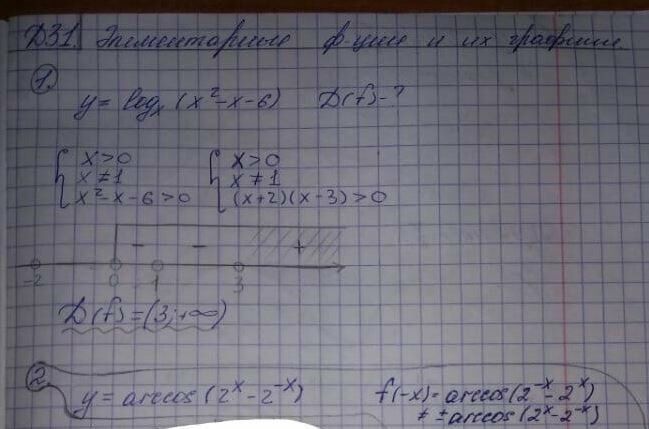 ДЗ1. Элементарные ф-ции и их графики.
1.
y = logₓ (x² - x - 6) D(f) - ?
{ x > 0 { x > 0
x ≠ 1 x ≠ 1
x² - x - 6 > 0 (x+2)(x-3) > 0
- - +
-2 0 1 3
D(f) = (3; +∞)
2.
y = arccos (2ˣ - 2⁻ˣ) f(-x) = arccos (2⁻ˣ - 2ˣ)
≠ ± arccos (2ˣ - 2⁻ˣ)